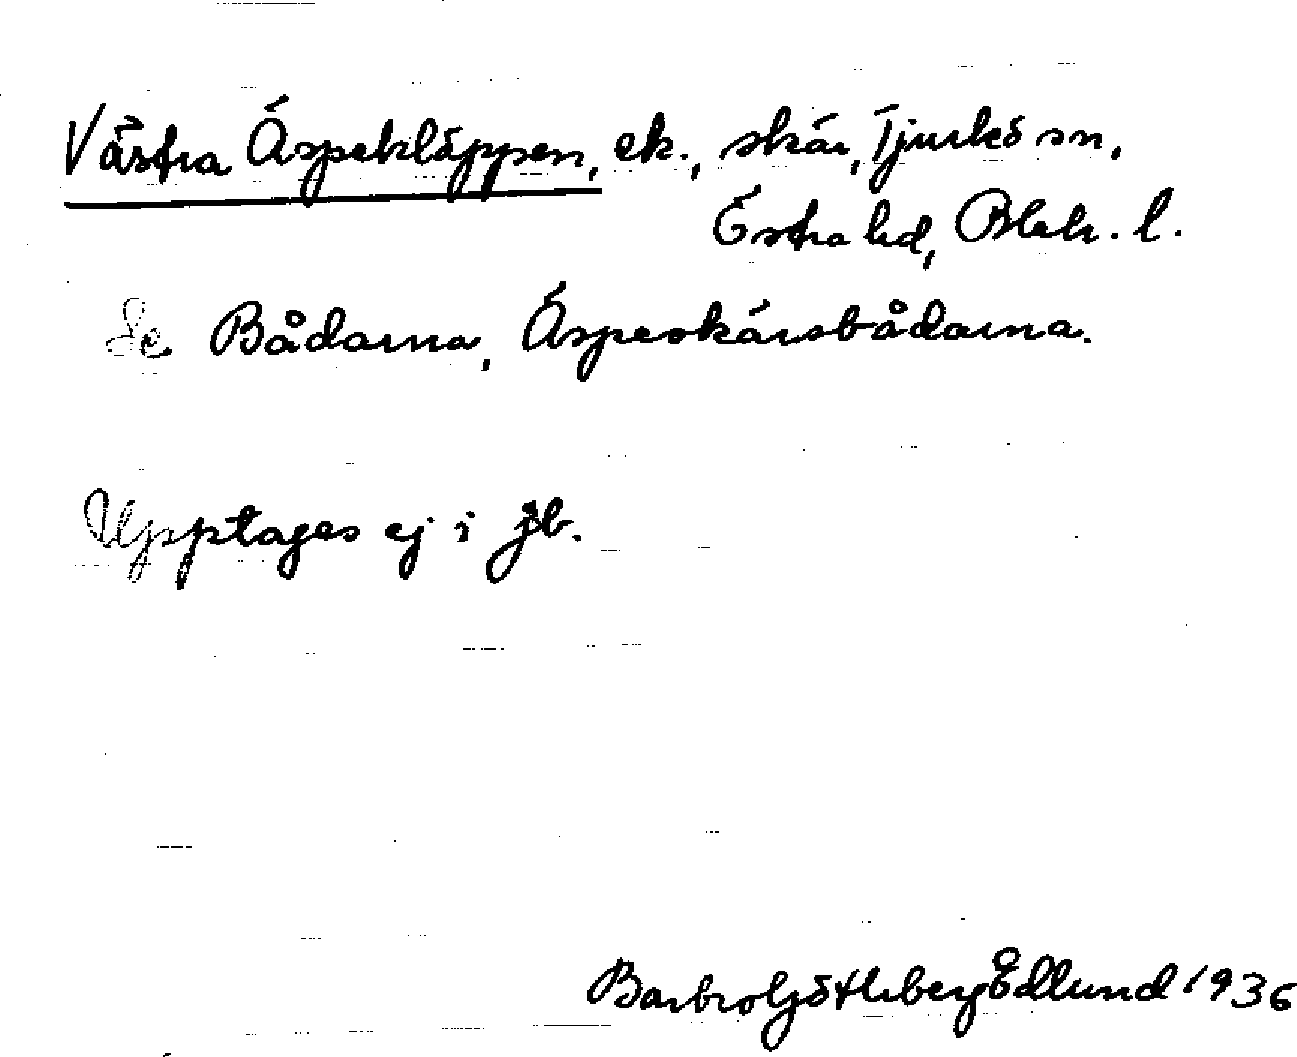 Västra Äspekläppen, ek., skär, Tjurkö sn,
Östra hd, Blek. l.
Se Bådarna, Äspeskärsbådarna.
Upptages ej i jb.
Barbro Götlberg Edlund 1936